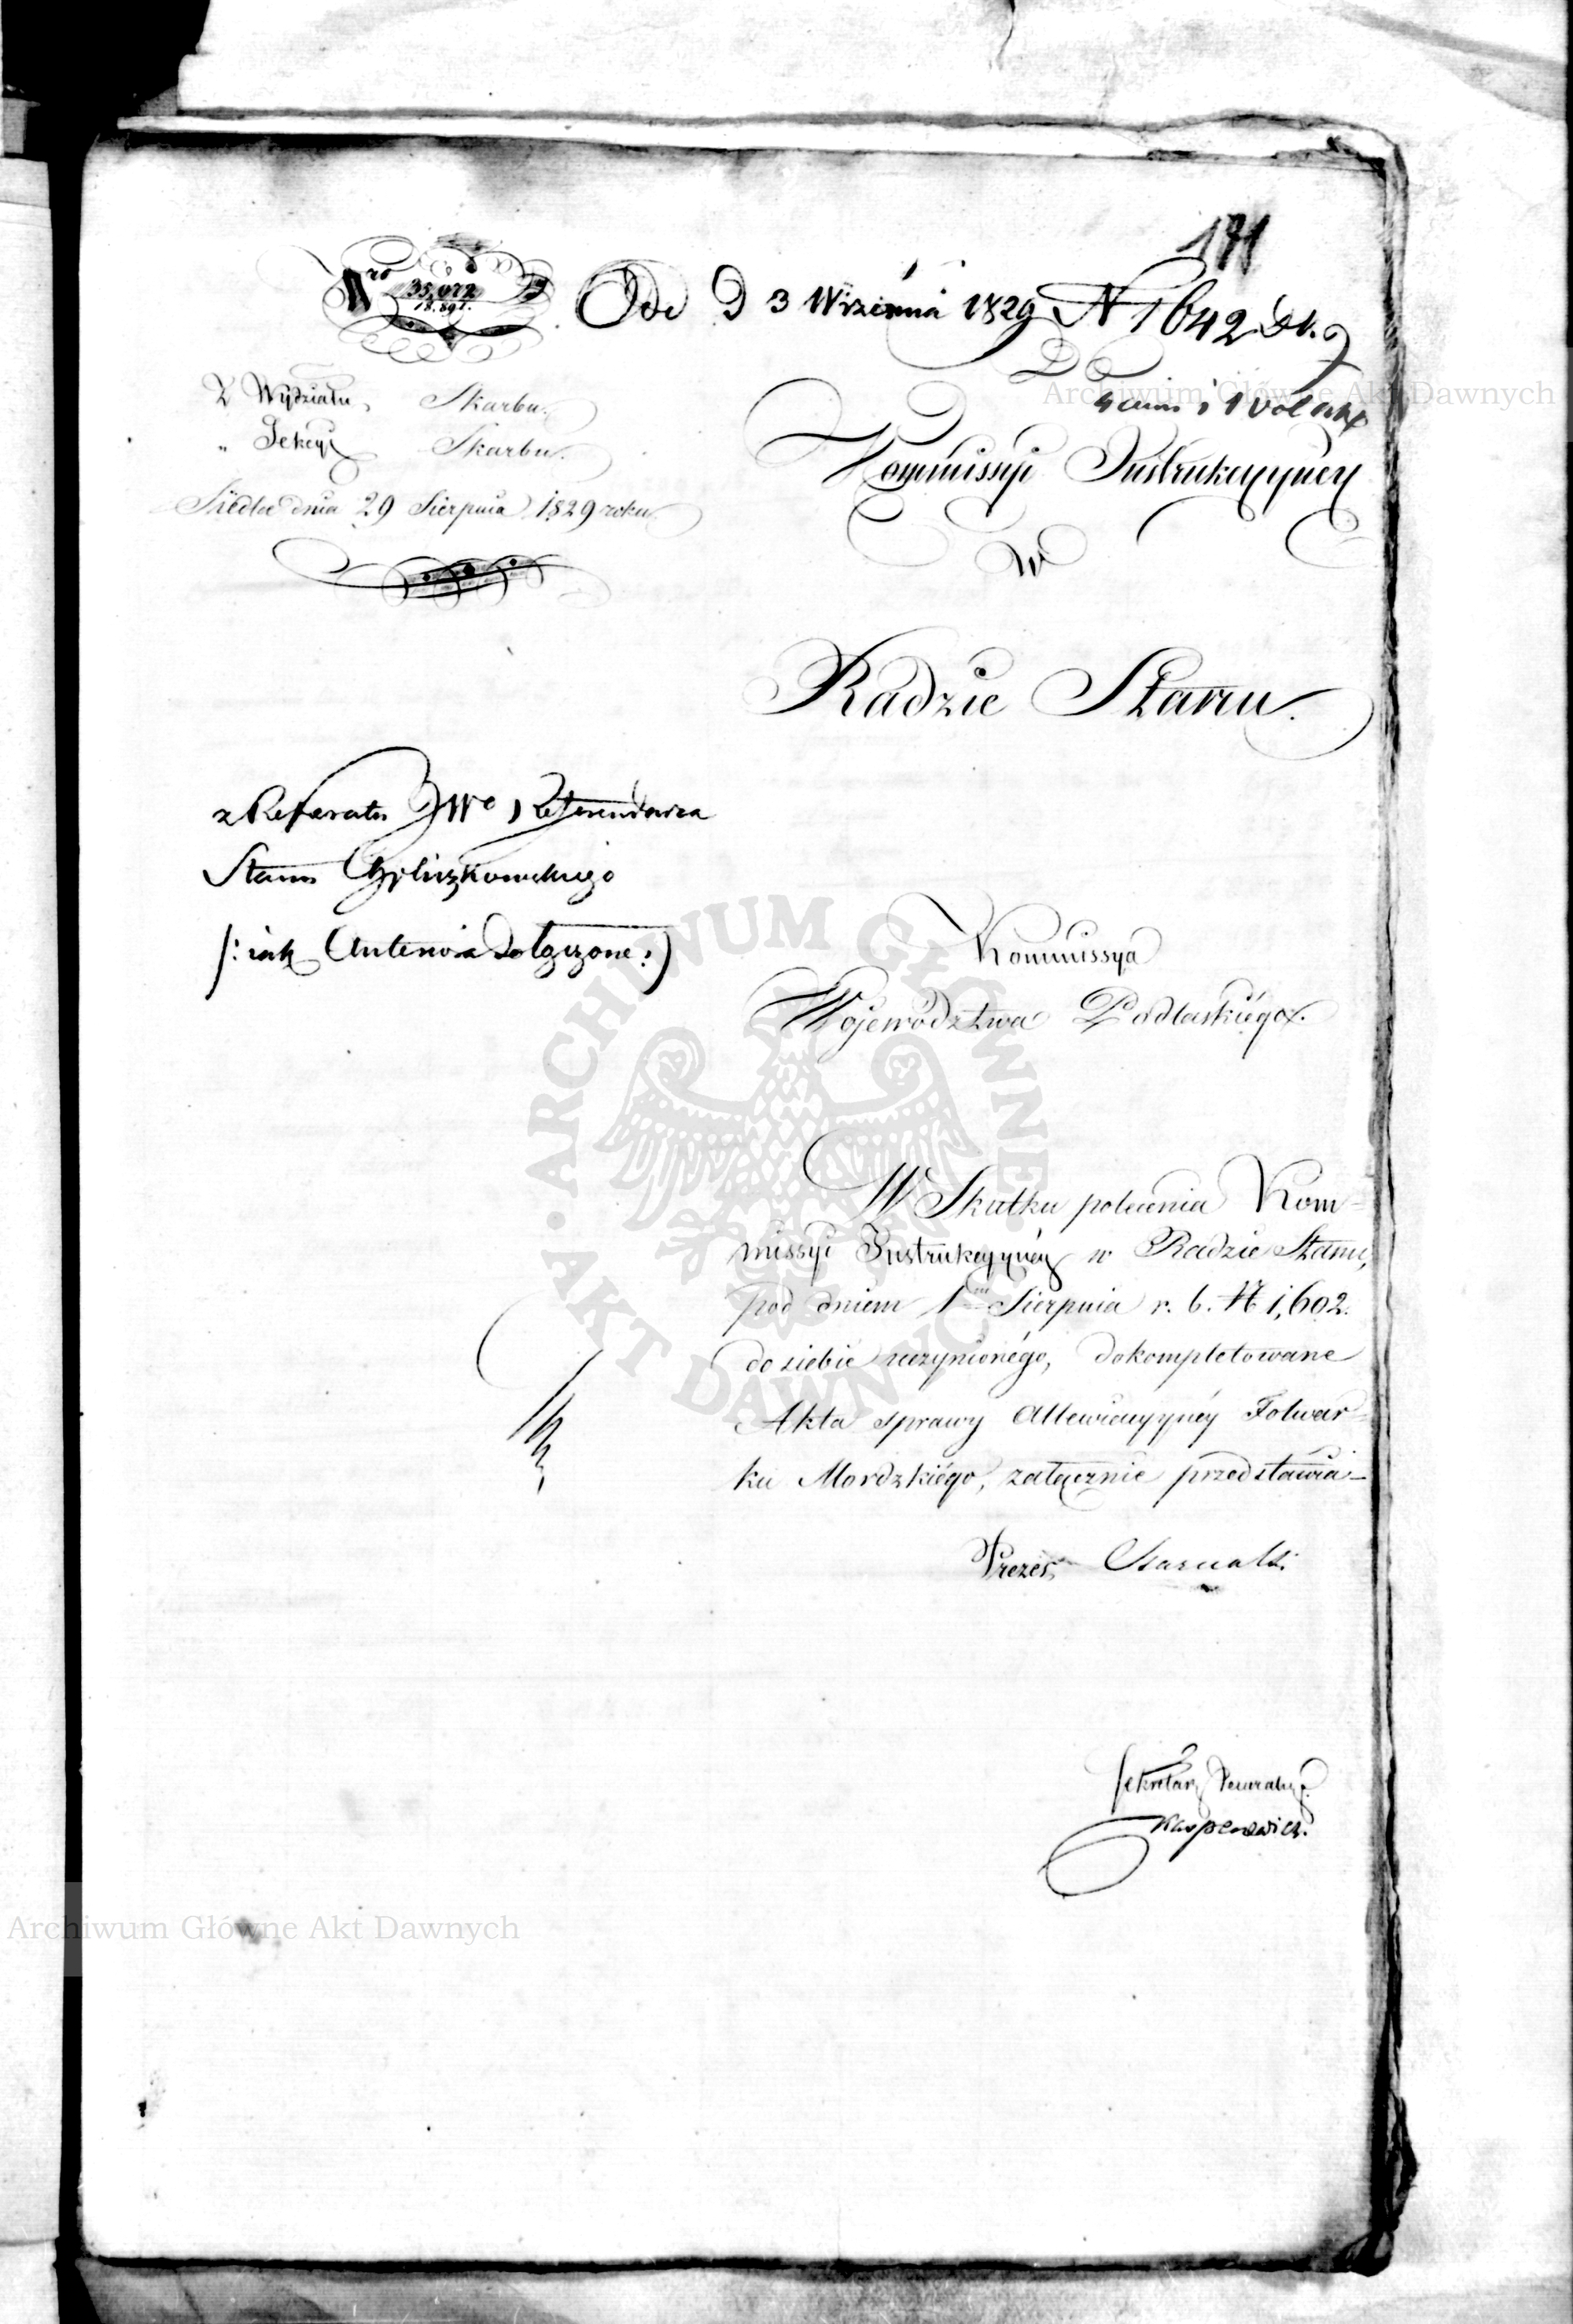 Nro 35,072
18.891.
Ode D 3 Września 1829 N 1642 Dk.
171
Z Wydziału Skarbu.
„ Sekcyi Skarbu.
Siedlce dnia 29 Sierpnia 1829 roku.
i 1 vol akt
Kommissyi Instrukcyynéy
W
Radzie Stanu.
z Referatu JWo Referendarza
Stanu
/: iak Antenvia dołączone :/
Kommissya
Województwa Podlaskiégo.
W Skutku polecenia Kom=
missyi Instrukcyynéy w Radzie Stanu,
pod dniem 1m Sierpnia r. b. N 1,602.
do siebie uczynionégo, dokompletowane
Akta sprawy Allewiacyynéy Folwar=
ku Mordzkiégo, załącznie przedstawia.
Prezes
Sekretarz Jeneralny
Kasperowicz.
Archiwum Główne Akt Dawnych
ARCHIWUM GŁÓWNE AKT DAWNYCH
Archiwum Główne Akt Dawnych